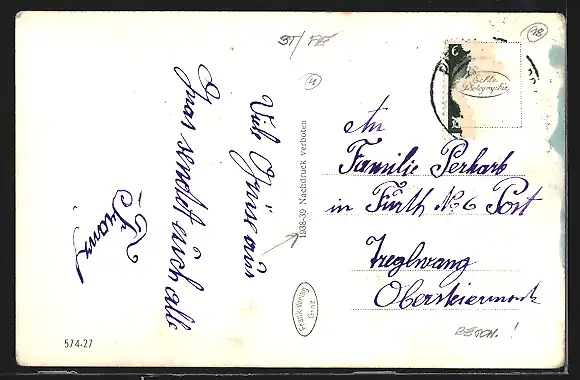 Viele Grüsse aus
Graz sendet euch alle
Franz
1938-39 Nachdruck verboten
Frank-Verlag
Graz
574-27
18
Echte
Photographie
An
Familie Perhab
in Fürth No 6 Post
Treglwang
Obersteiermark
BESCH. !